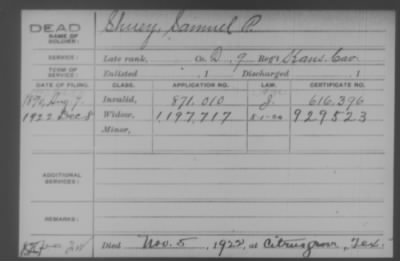 DEAD Shuey, Samuel P.
NAME OF
SOLDIER:
SERVICE: Late rank, Co. D, 9 Reg't Kans. Cav.
TERM OF
SERVICE: Enlisted , 1 Discharged , 1
DATE OF FILING. CLASS. APPLICATION NO. LAW. CERTIFICATE NO.
1890, Aug 7 Invalid, 871.010 J. 616.396
1922 Dec 8 Widow, 1,197,717 5-1-20 929523
Minor,
ADDITIONAL
SERVICES:
REMARKS:
Died Nov. 5, 1922, at Citrusgrove, Tex.